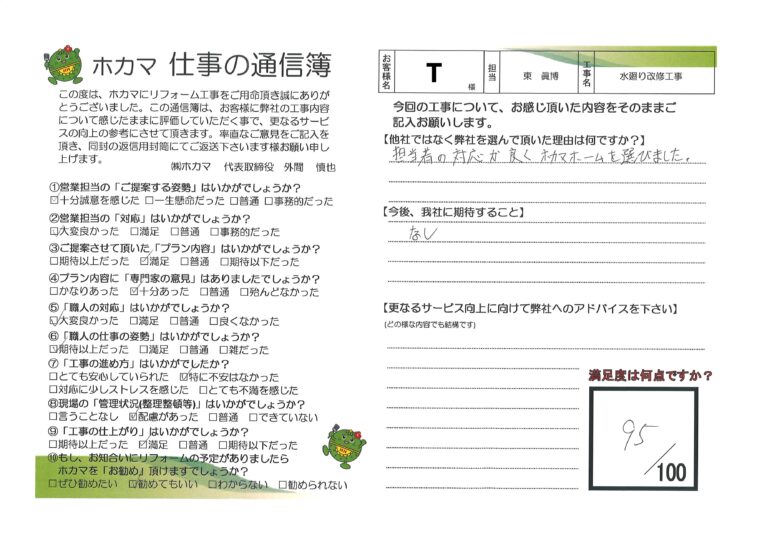 ホカマ 仕事の通信簿
この度は、ホカマにリフォーム工事をご用命頂き誠にありが
とうございました。この通信簿は、お客様に弊社の工事内容
について感じたままに評価していただく事で、更なるサービ
スの向上の参考にさせて頂きます。率直なご意見をご記入を
頂き、同封の返信用封筒にてご返送下さいます様お願い申し
上げます。
㈱ホカマ 代表取締役 外間 慎也
①営業担当の「ご提案する姿勢」はいかがでしょうか?
☑十分誠意を感じた □一生懸命だった □普通 □事務的だった
②営業担当の「対応」はいかがでしょうか?
☑大変良かった □満足 □普通 □事務的だった
③ご提案させて頂いた「プラン内容」はいかがでしょうか?
□期待以上だった ☑満足 □普通 □期待以下だった
④プラン内容に「専門家の意見」はありましたでしょうか?
□かなりあった ☑十分あった □普通 □殆んどなかった
⑤「職人の対応」はいかがでしょうか?
☑大変良かった □満足 □普通 □良くなかった
⑥「職人の仕事の姿勢」はいかがでしょうか?
☑期待以上だった □満足 □普通 □雑だった
⑦「工事の進め方」はいかがでしたか?
□とても安心していられた ☑特に不安はなかった
□対応に少しストレスを感じた □とても不満を感じた
⑧現場の「管理状況(整理整頓等)」はいかがでしょうか?
□言うことなし ☑配慮があった □普通 □できていない
⑨「工事の仕上がり」はいかがでしょうか?
□期待以上だった ☑満足 □普通 □期待以下だった
⑩もし、お知合いにリフォームの予定がありましたら
ホカマを「お勧め」頂けますでしょうか?
□ぜひ勧めたい ☑勧めてもいい □わからない □勧められない
お客様名 T 様 担当 東 眞博 工事名 水廻り改修工事
今回の工事について、お感じ頂いた内容をそのままご
記入お願いします。
【他社ではなく弊社を選んで頂いた理由は何ですか?】
担当者の対応が良くホカマホームを選びました。
【今後、我社に期待すること】
なし
【更なるサービス向上に向けて弊社へのアドバイスを下さい】
(どの様な内容でも結構です)
満足度は何点ですか?
95/100